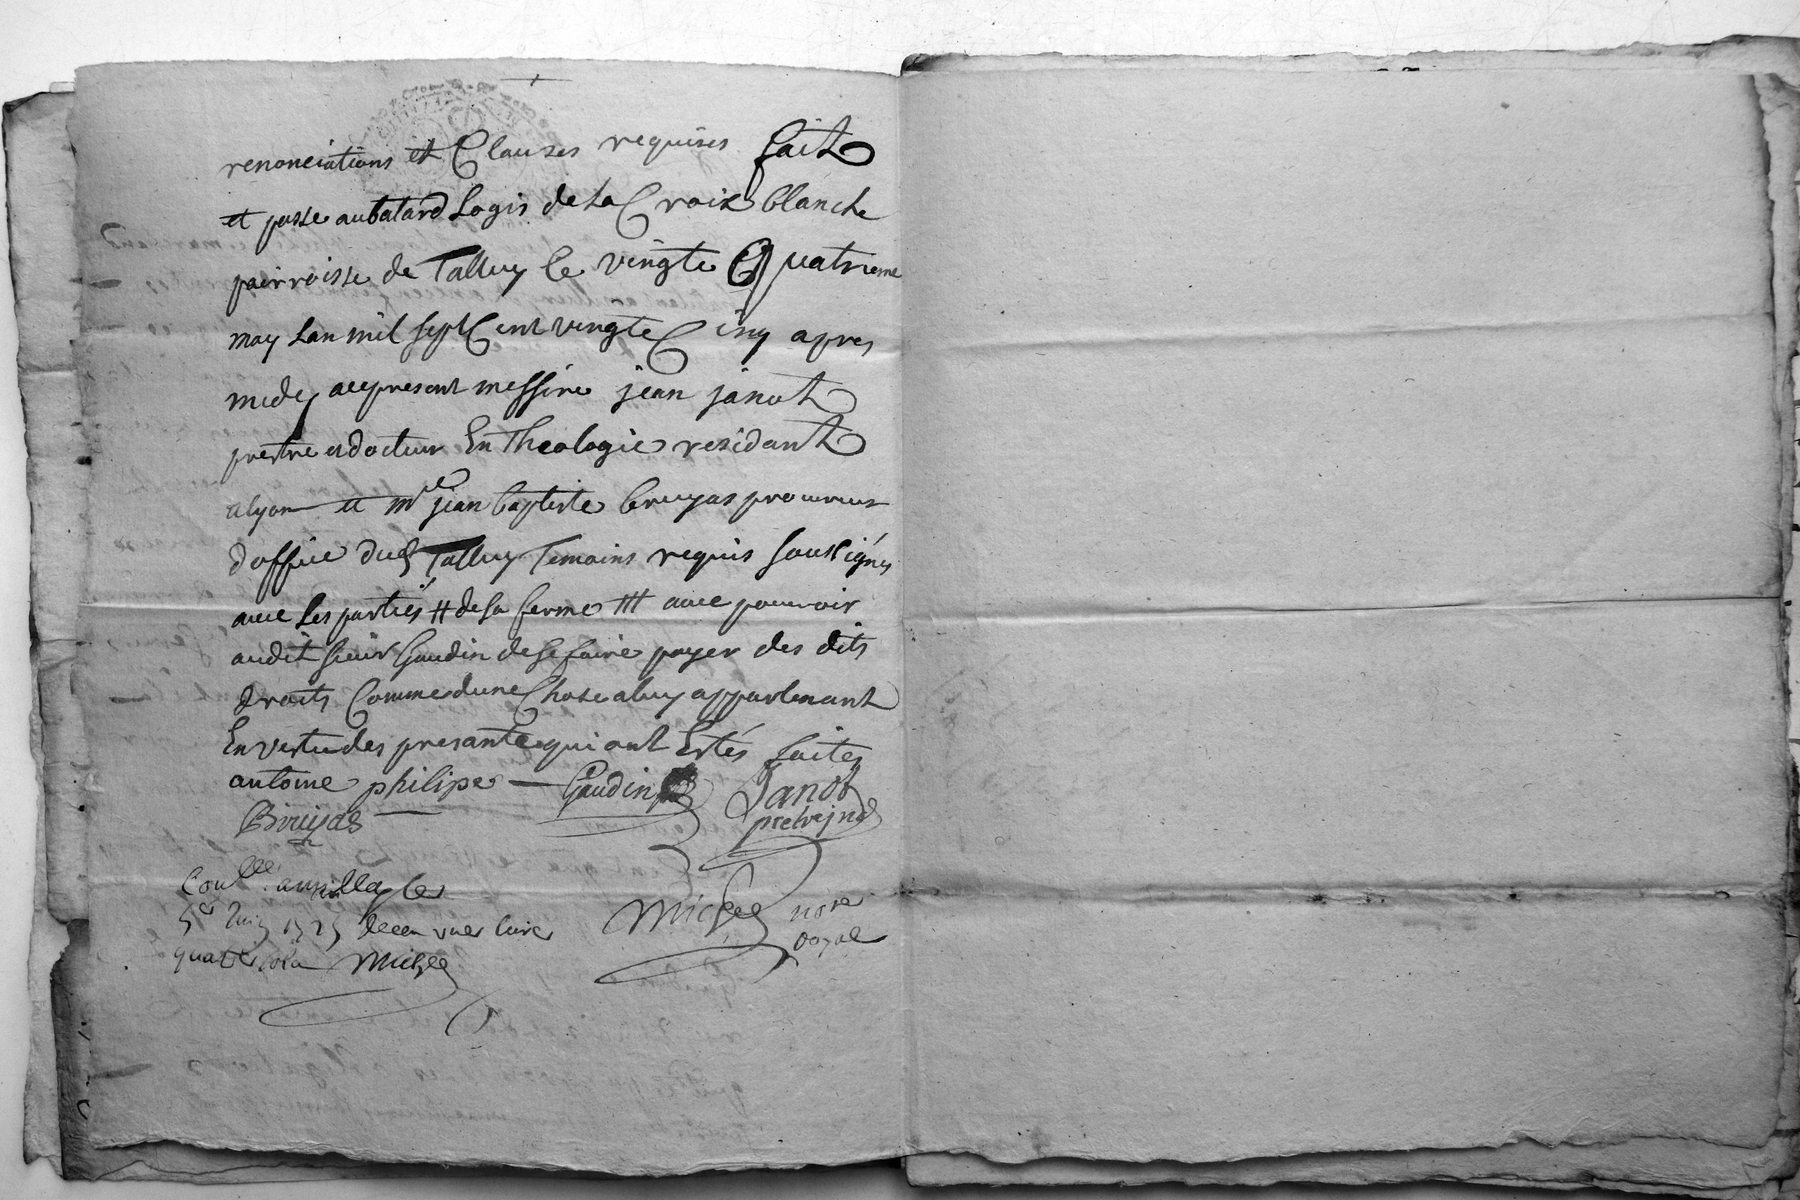 renonciations et Clauses requises fait
et passe au batard Logis de la Croix blanche
pairroisse de Talluy le vingte Quatrieme
may Lan mil sept Cent vingte Cinq apres
midy a ce present messire jean janot
prestre et docteur En Theologie residant
a lyon et mre jean baptiste bruyas procureur
doffice dud Talluy Temoins requis soussignés
avec Les partiés # de la ferme ### avec pouvoir
audit sieur Gaudin de se faire payer des dits
droits Comme dune Chose a luy appartenant
En vertu des presante qui ont Estés faites
antoine philipe Gaudin Janot
Bruyas
Coullé a le
5er Juin 1725 Receu une livre
quatre sols Michel
Michel nore
royal